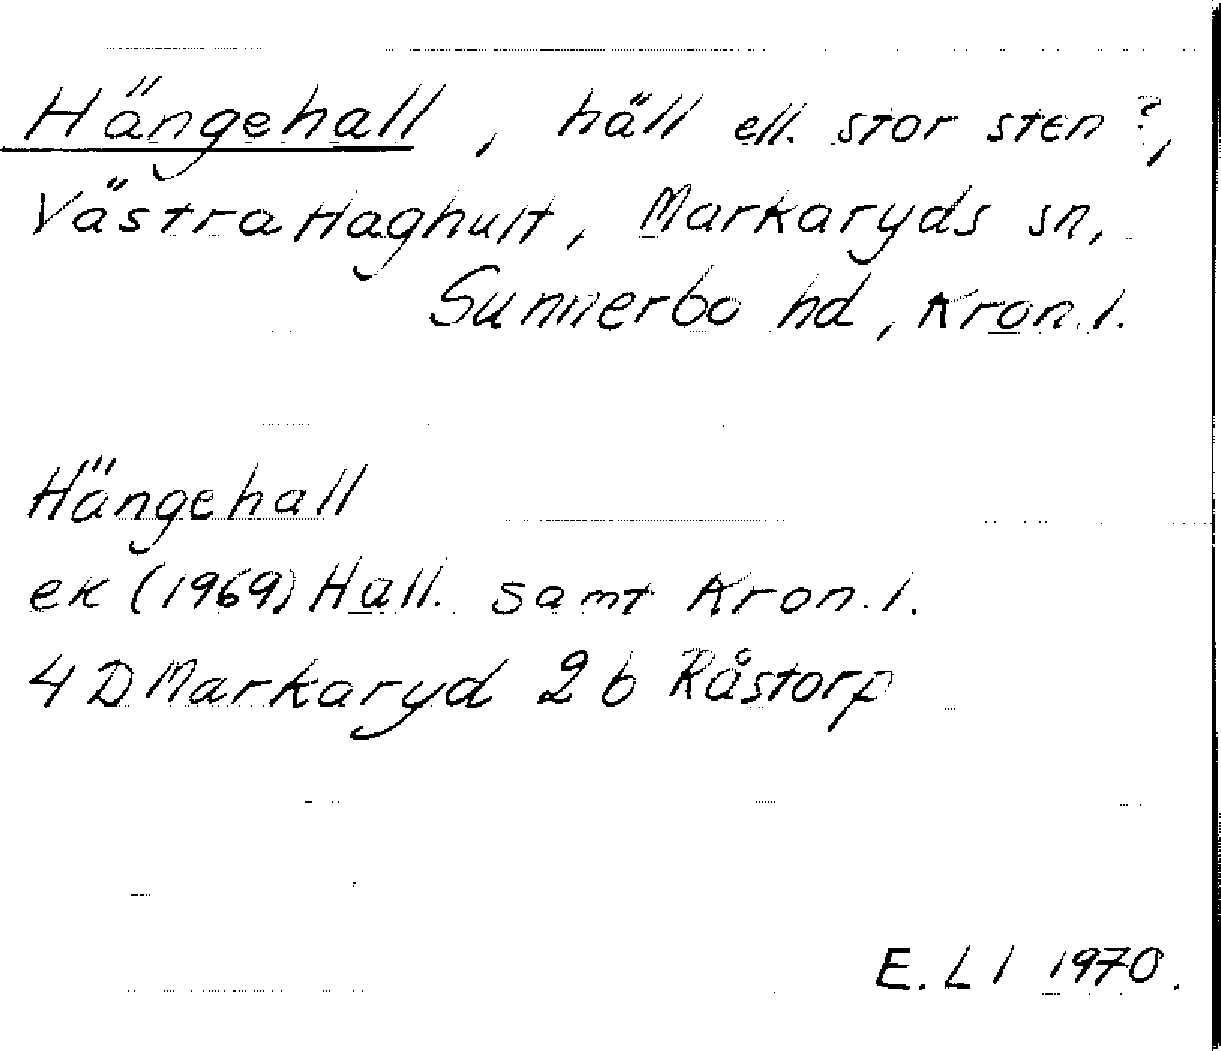 Hängehall, häll ell. stor sten?,
Västra Haghult, Markaryds sn,
Sunnerbo hd, Kron. l.
Hängehall
ek (1969) Hall. samt Kron. l.
4 D Markaryd 2 b Råstorp
E. L l 1970.